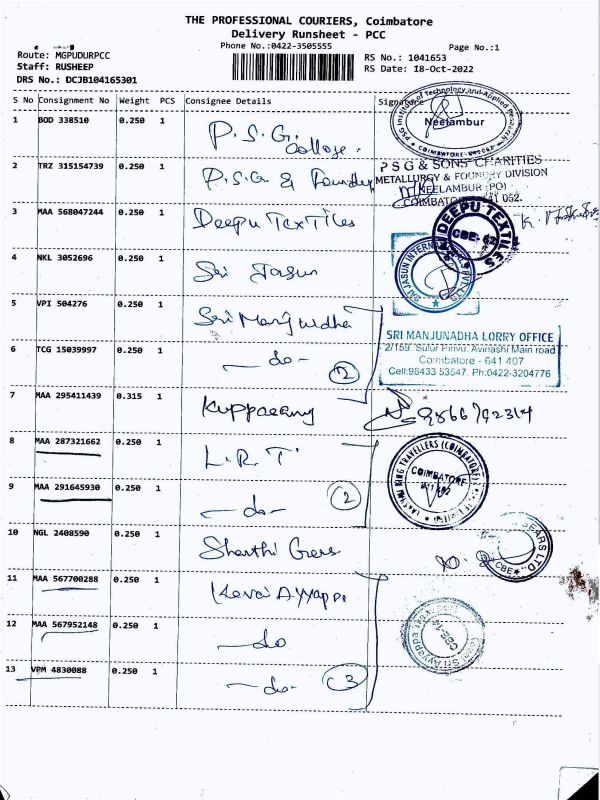 THE PROFESSIONAL COURIERS, Coimbatore
Delivery Runsheet - PCC
Phone No.:0422-3505555
Page No.:1
Route: MGPUDURPCC
RS No.: 1041653
Staff: RUSHEEP
RS Date: 18-Oct-2022
DRS No.: DCJB104165301
S No Consignment No Weight PCS Consignee Details Signature
1 BOD 338510 0.250 1 P.S.G. College.
PSG Institute of Technology and Applied Research
Neelambur
COIMBATORE
2 TRZ 315154739 0.250 1 P.S.G & Foundry
PSG & SONS' CHARITIES
METALLURGY & FOUNDRY DIVISION
NEELAMBUR (PO)
COIMBATORE 641 062.
3 MAA 568047244 0.250 1 Deepu Textiles
DEEPU TEXTILES
CBE-62
4 NKL 3052696 0.250 1 Sri Jasun
SRI JASUN INTERNATIONAL PVT LTD
5 VPI 504276 0.250 1 Sri Manjundha
6 TCG 15039997 0.250 1 -do- 2
SRI MANJUNADHA LORRY OFFICE
2/159, Sulur Pirivu, Avinashi Main road
Coimbatore - 641 407
Cell:98433 53547. Ph:0422-3204776
7 MAA 295411439 0.315 1 Kuppaeany
8 MAA 287321662 0.250 1 L.R.T.
KING TRAVELLERS (COIMBATORE)
COIMBATORE
9 MAA 291645930 0.250 1 -do- 2
10 NGL 2408590 0.250 1 Shanthi Gears
GEARS LTD.,
CBE
11 MAA 567700288 0.250 1 Kovai Ayyappa
12 MAA 567952148 0.250 1 -do
CBE-14
13 VPM 4830088 0.250 1 -do- 3